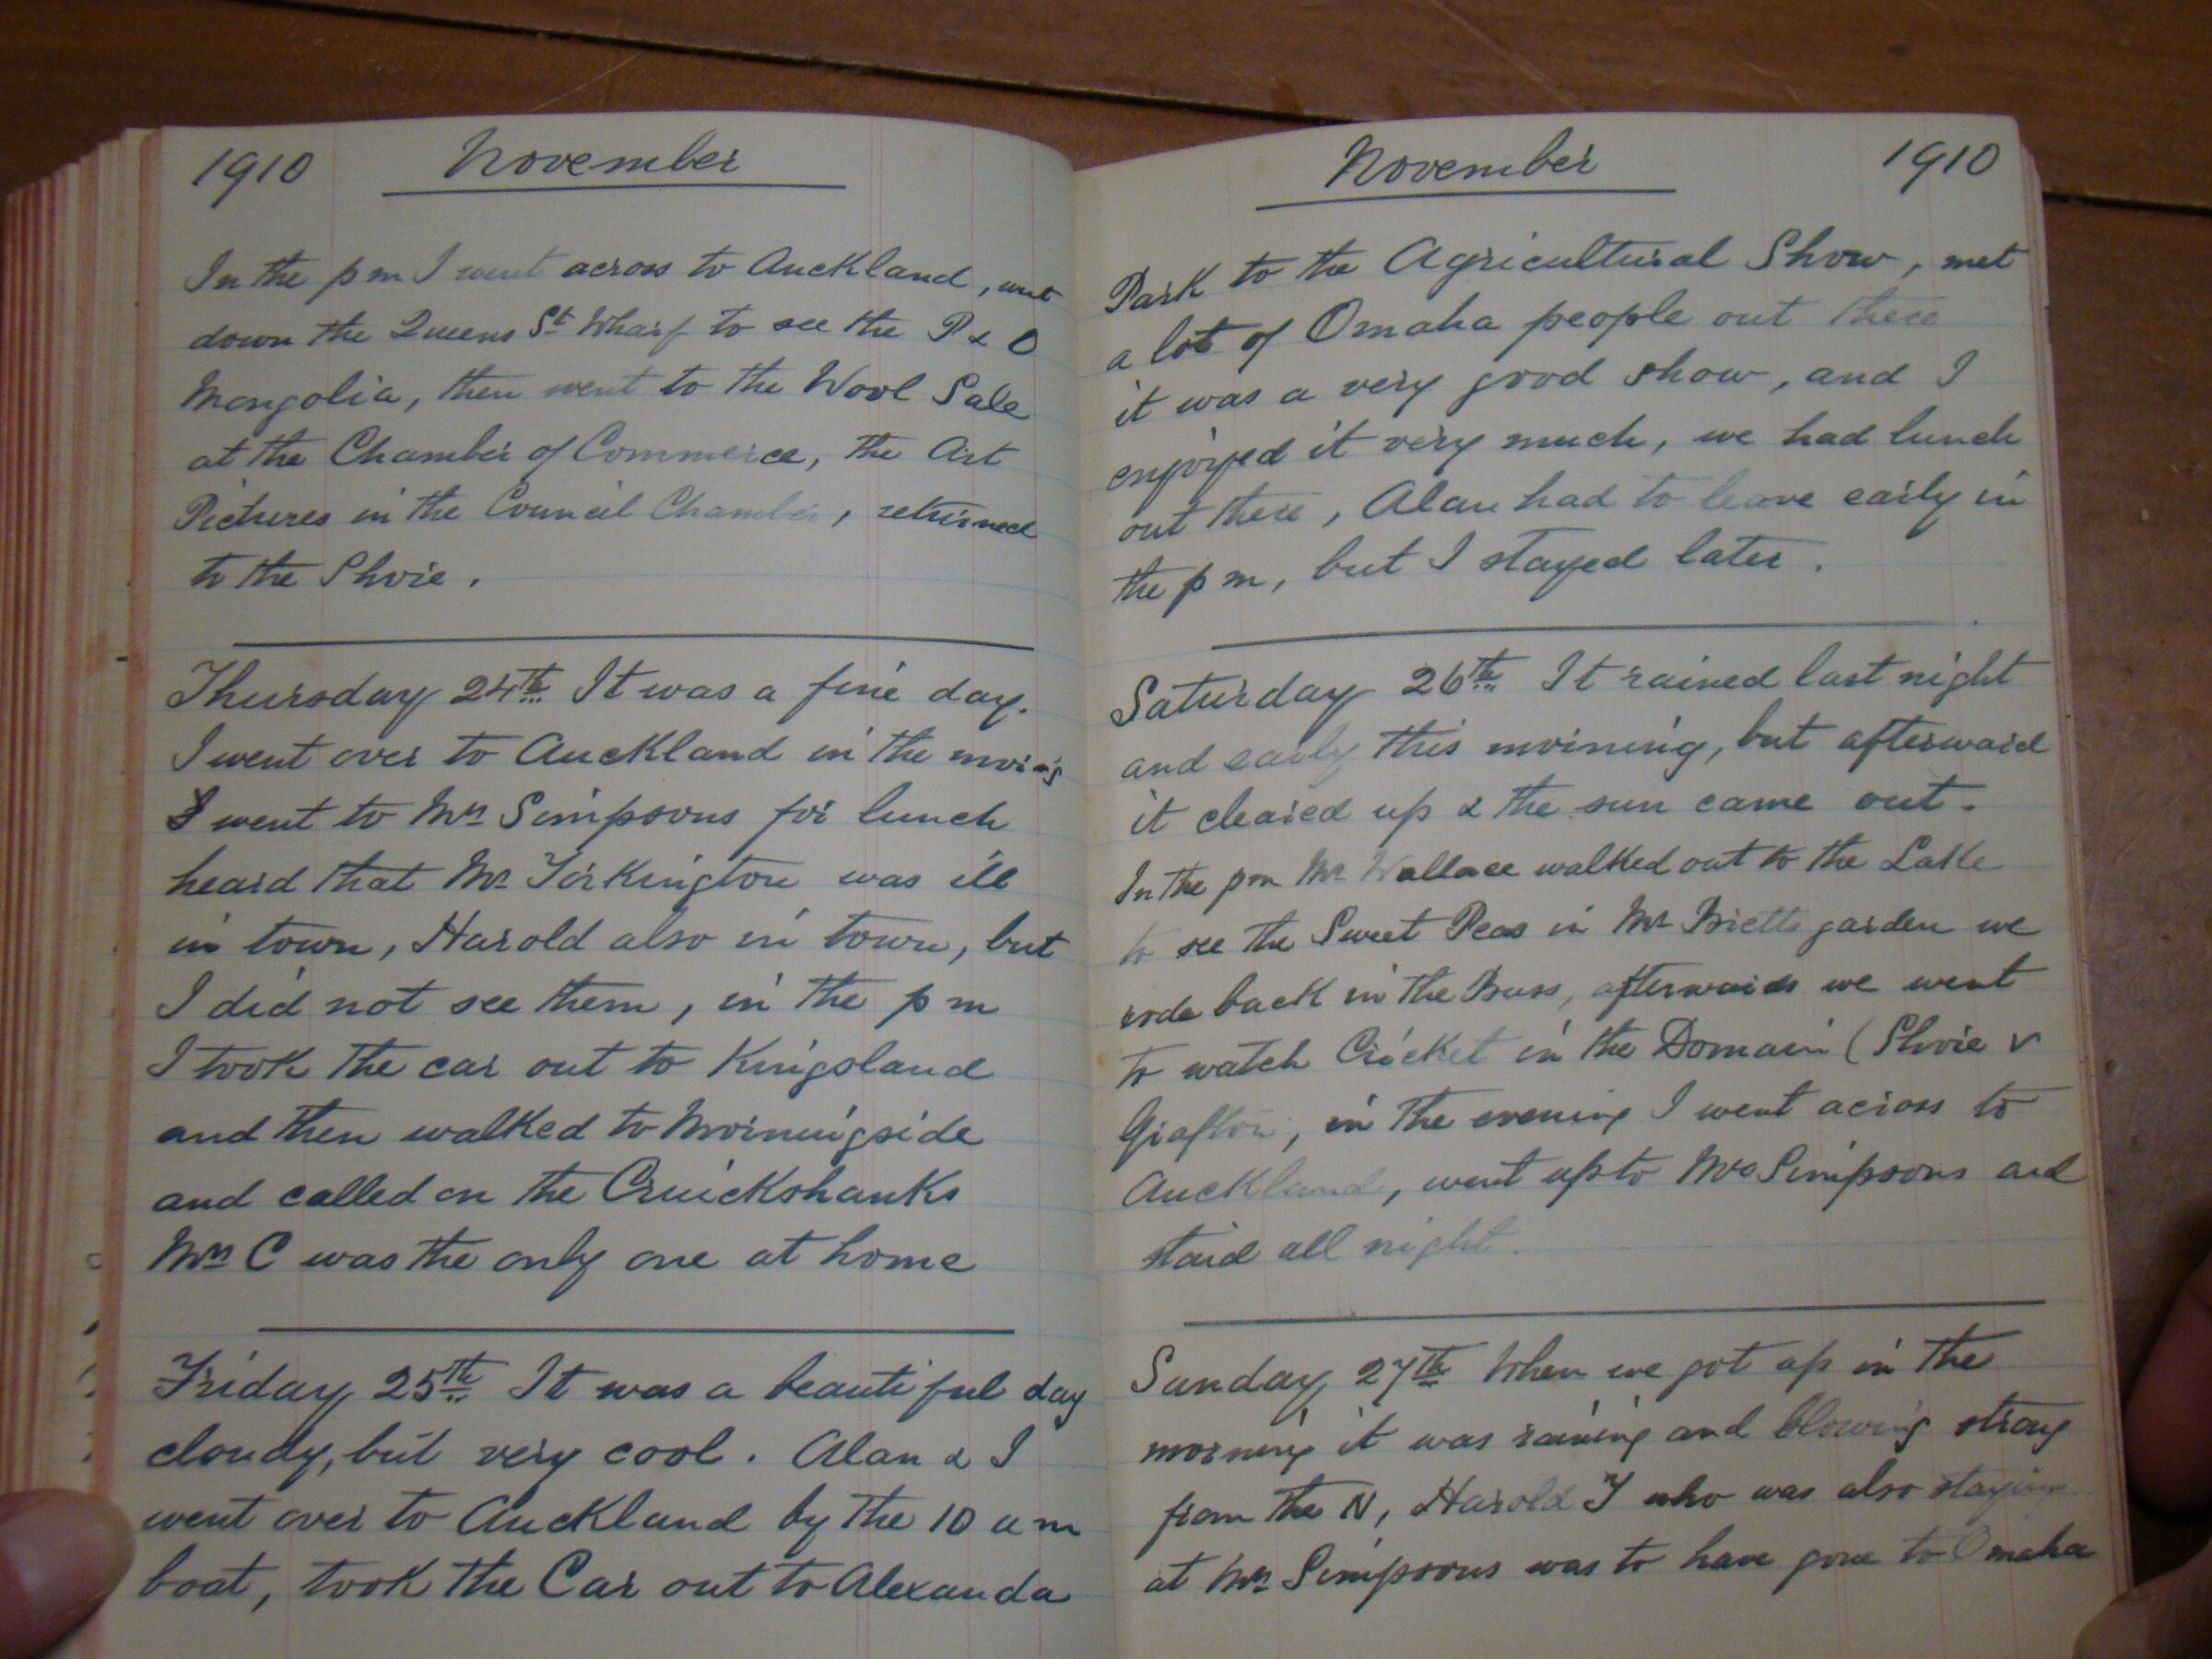 1910 November
In the pm I went across to Auckland, went
down the Queens St Wharf to see the P & O
Mongolia, then went to the Wool Sale
at the Chamber of Commerce, the Art
Pictures in the Council Chamber, returned
to the Shore.
Thursday 24th It was a fine day.
I went over to Auckland in the morng
I went to Mrs Simpsons for lunch
heard that Mr Torkington was ill
in town, Harold also in town, but
I did not see them, in the pm
I took the car out to Kingsland
and then walked to Morningside
and called on the Cruickshanks
Mrs C was the only one at home
Friday 25th It was a beautiful day
cloudy, but very cool. Alan & I
went over to Auckland by the 10 am
boat, took the Car out to Alexanda
November 1910
Park to the Agricultural Show, met
a lot of Omaha people out there
it was a very good show, and I
enjoyed it very much, we had lunch
out there, Alan had to leave early in
the pm, but I stayed later.
Saturday 26th It rained last night
and early this morning, but afterward
it cleared up & the sun came out.
In the pm Mr Wallace walked out to the Lake
to see the Sweet Peas in Mr Bretts garden we
rode back in the Buss, afterwards we went
to watch Cricket in the Domain (Shore v
Grafton, in the evening I went across to
Auckland, went up to Mrs Simpsons and
staid all night.
Sunday 27th When we got up in the
morning it was raining and blowing strong
from the N, Harold T who was also staying
at Mrs Simpsons was to have gone to Omaha